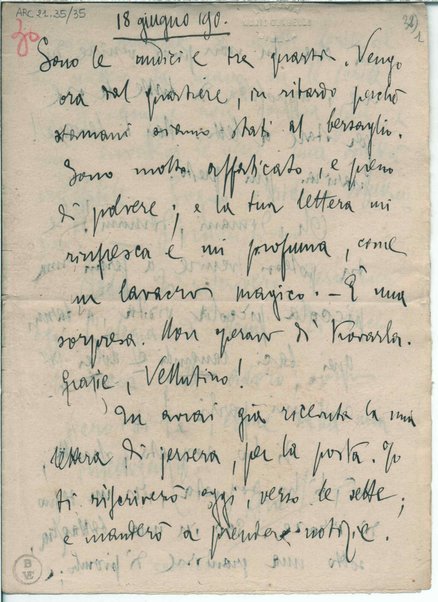 ARC 21.35/35
30
32)1
18 giugno 190.
Sono le undici e tre quarti. Vengo
ora dal quartiere, in ritardo perchè
stamani siamo stati al bersaglio.
Sono molto affaticato, e pieno
di polvere; e la tua lettera mi
rinfresca e mi profuma, come
un lavacro magico. – È una
sorpresa. Non speravo di trovarla.
Grazie, Vellutino!
Tu avrai già ricevuta la mia
lettera di jersera, per la posta. Io
ti riscriverò oggi, verso le sette;
e manderò a prendere notizie.